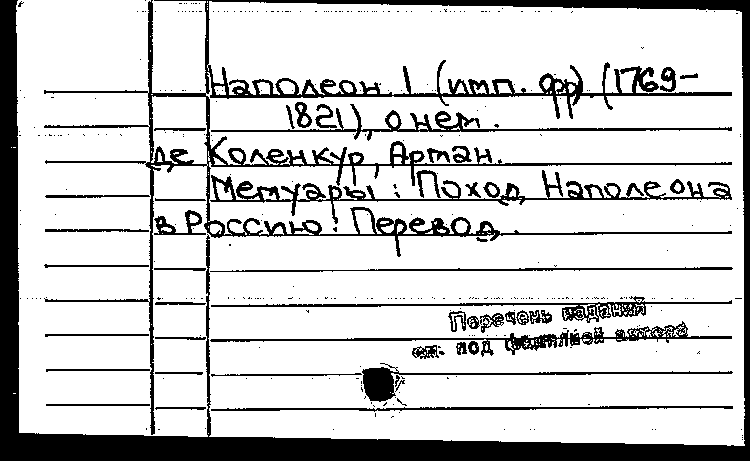 Наполеон I (имп. фр). (1769-
1821), о нем.
де Коленкур, Арман.
Мемуары: Поход Наполеона
в Россию: Перевод.
Перечень изданий
см. под фамилией автора